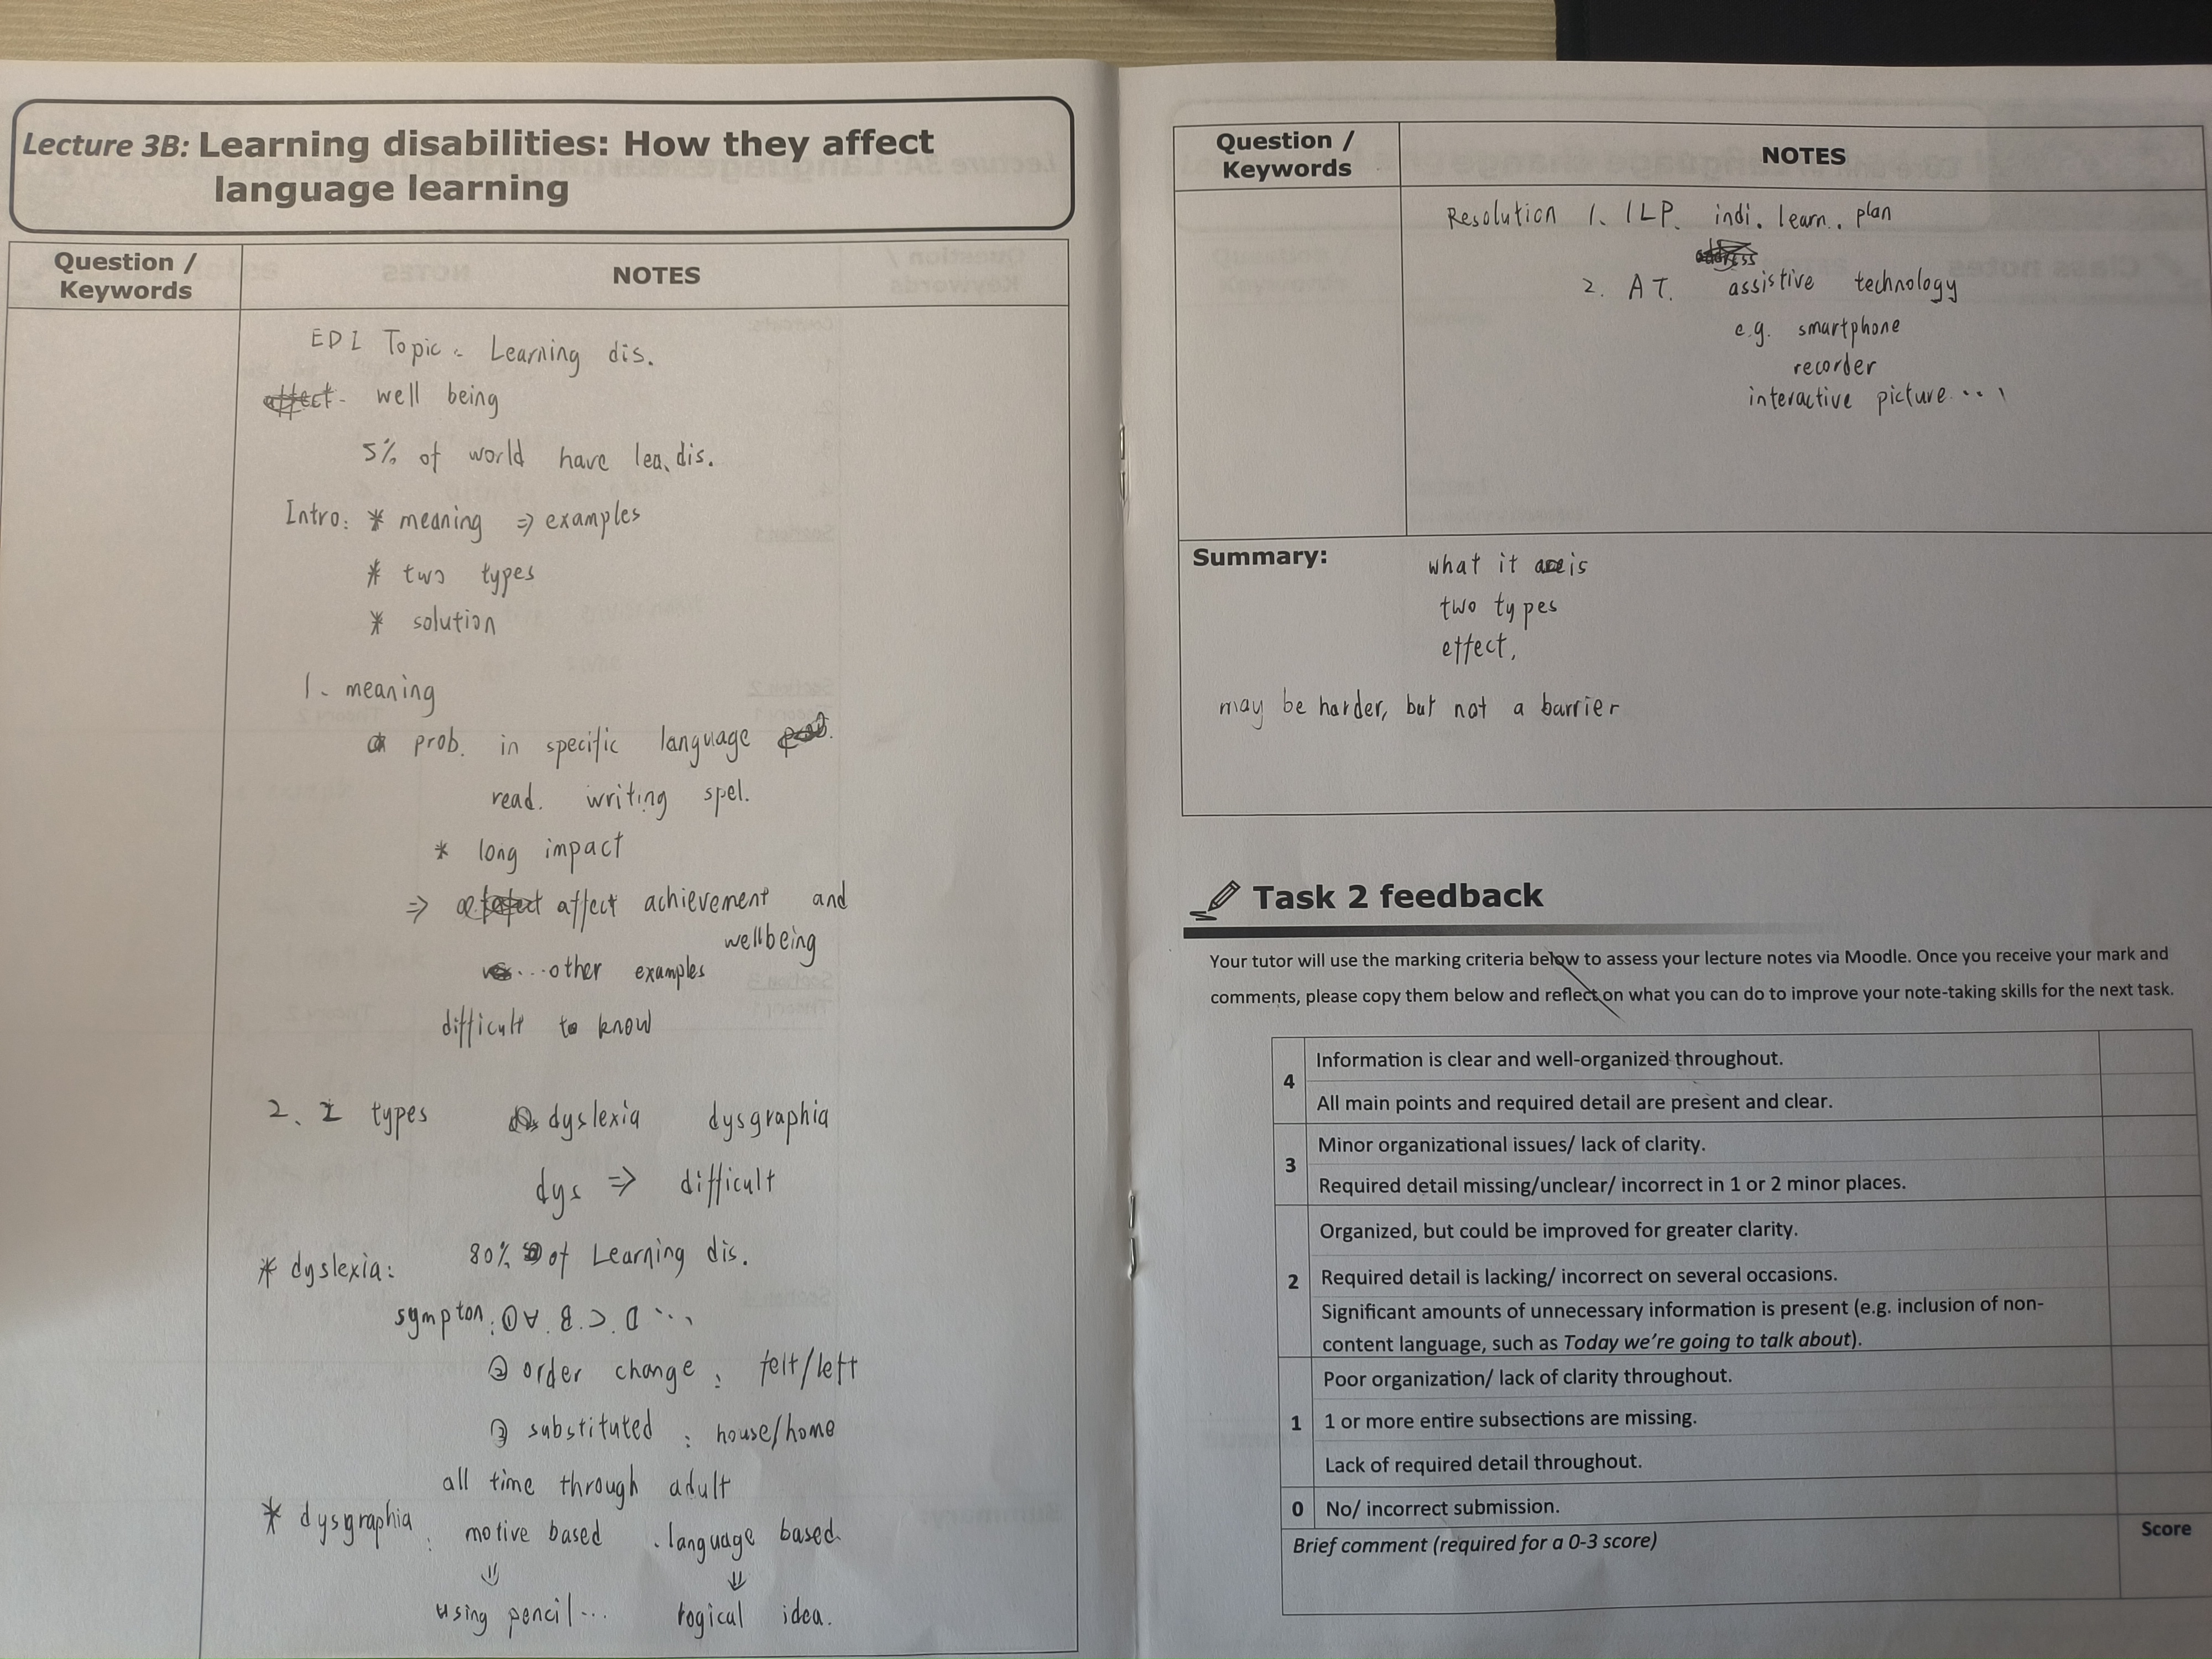 Lecture 3B: Learning disabilities: How they affect
language learning
Question /
Keywords
NOTES
EDI Topic: Learning dis.
well being
5% of world have lea. dis.
Intro: * meaning ⇒ examples
* two types
* solution
1. meaning
prob. in specific language
read. writing spel.
* long impact
⇒ affect achievement and
wellbeing
...other examples
difficult to know
2. 2 types dyslexia dysgraphia
dys ⇒ difficult
80% of Learning dis.
* dyslexia:
sympton: ①
② order change: felt/left
③ substituted: house/home
all time through adult
* dysgraphia: motive based . language based.
⇓ ⇓
using pencil... logical idea.
Question /
Keywords
NOTES
Resolution 1. ILP. indi. learn.. plan
2. AT. assistive technology
e.g. smartphone
recorder
interactive picture...
Summary:
what it is
two types
effect.
may be harder, but not a barrier
Task 2 feedback
Your tutor will use the marking criteria below to assess your lecture notes via Moodle. Once you receive your mark and
comments, please copy them below and reflect on what you can do to improve your note-taking skills for the next task.
4
Information is clear and well-organized throughout.
All main points and required detail are present and clear.
3
Minor organizational issues/ lack of clarity.
Required detail missing/unclear/ incorrect in 1 or 2 minor places.
2
Organized, but could be improved for greater clarity.
Required detail is lacking/ incorrect on several occasions.
Significant amounts of unnecessary information is present (e.g. inclusion of non-
content language, such as Today we're going to talk about).
1
Poor organization/ lack of clarity throughout.
1 or more entire subsections are missing.
Lack of required detail throughout.
0 No/ incorrect submission.
Brief comment (required for a 0-3 score)
Score